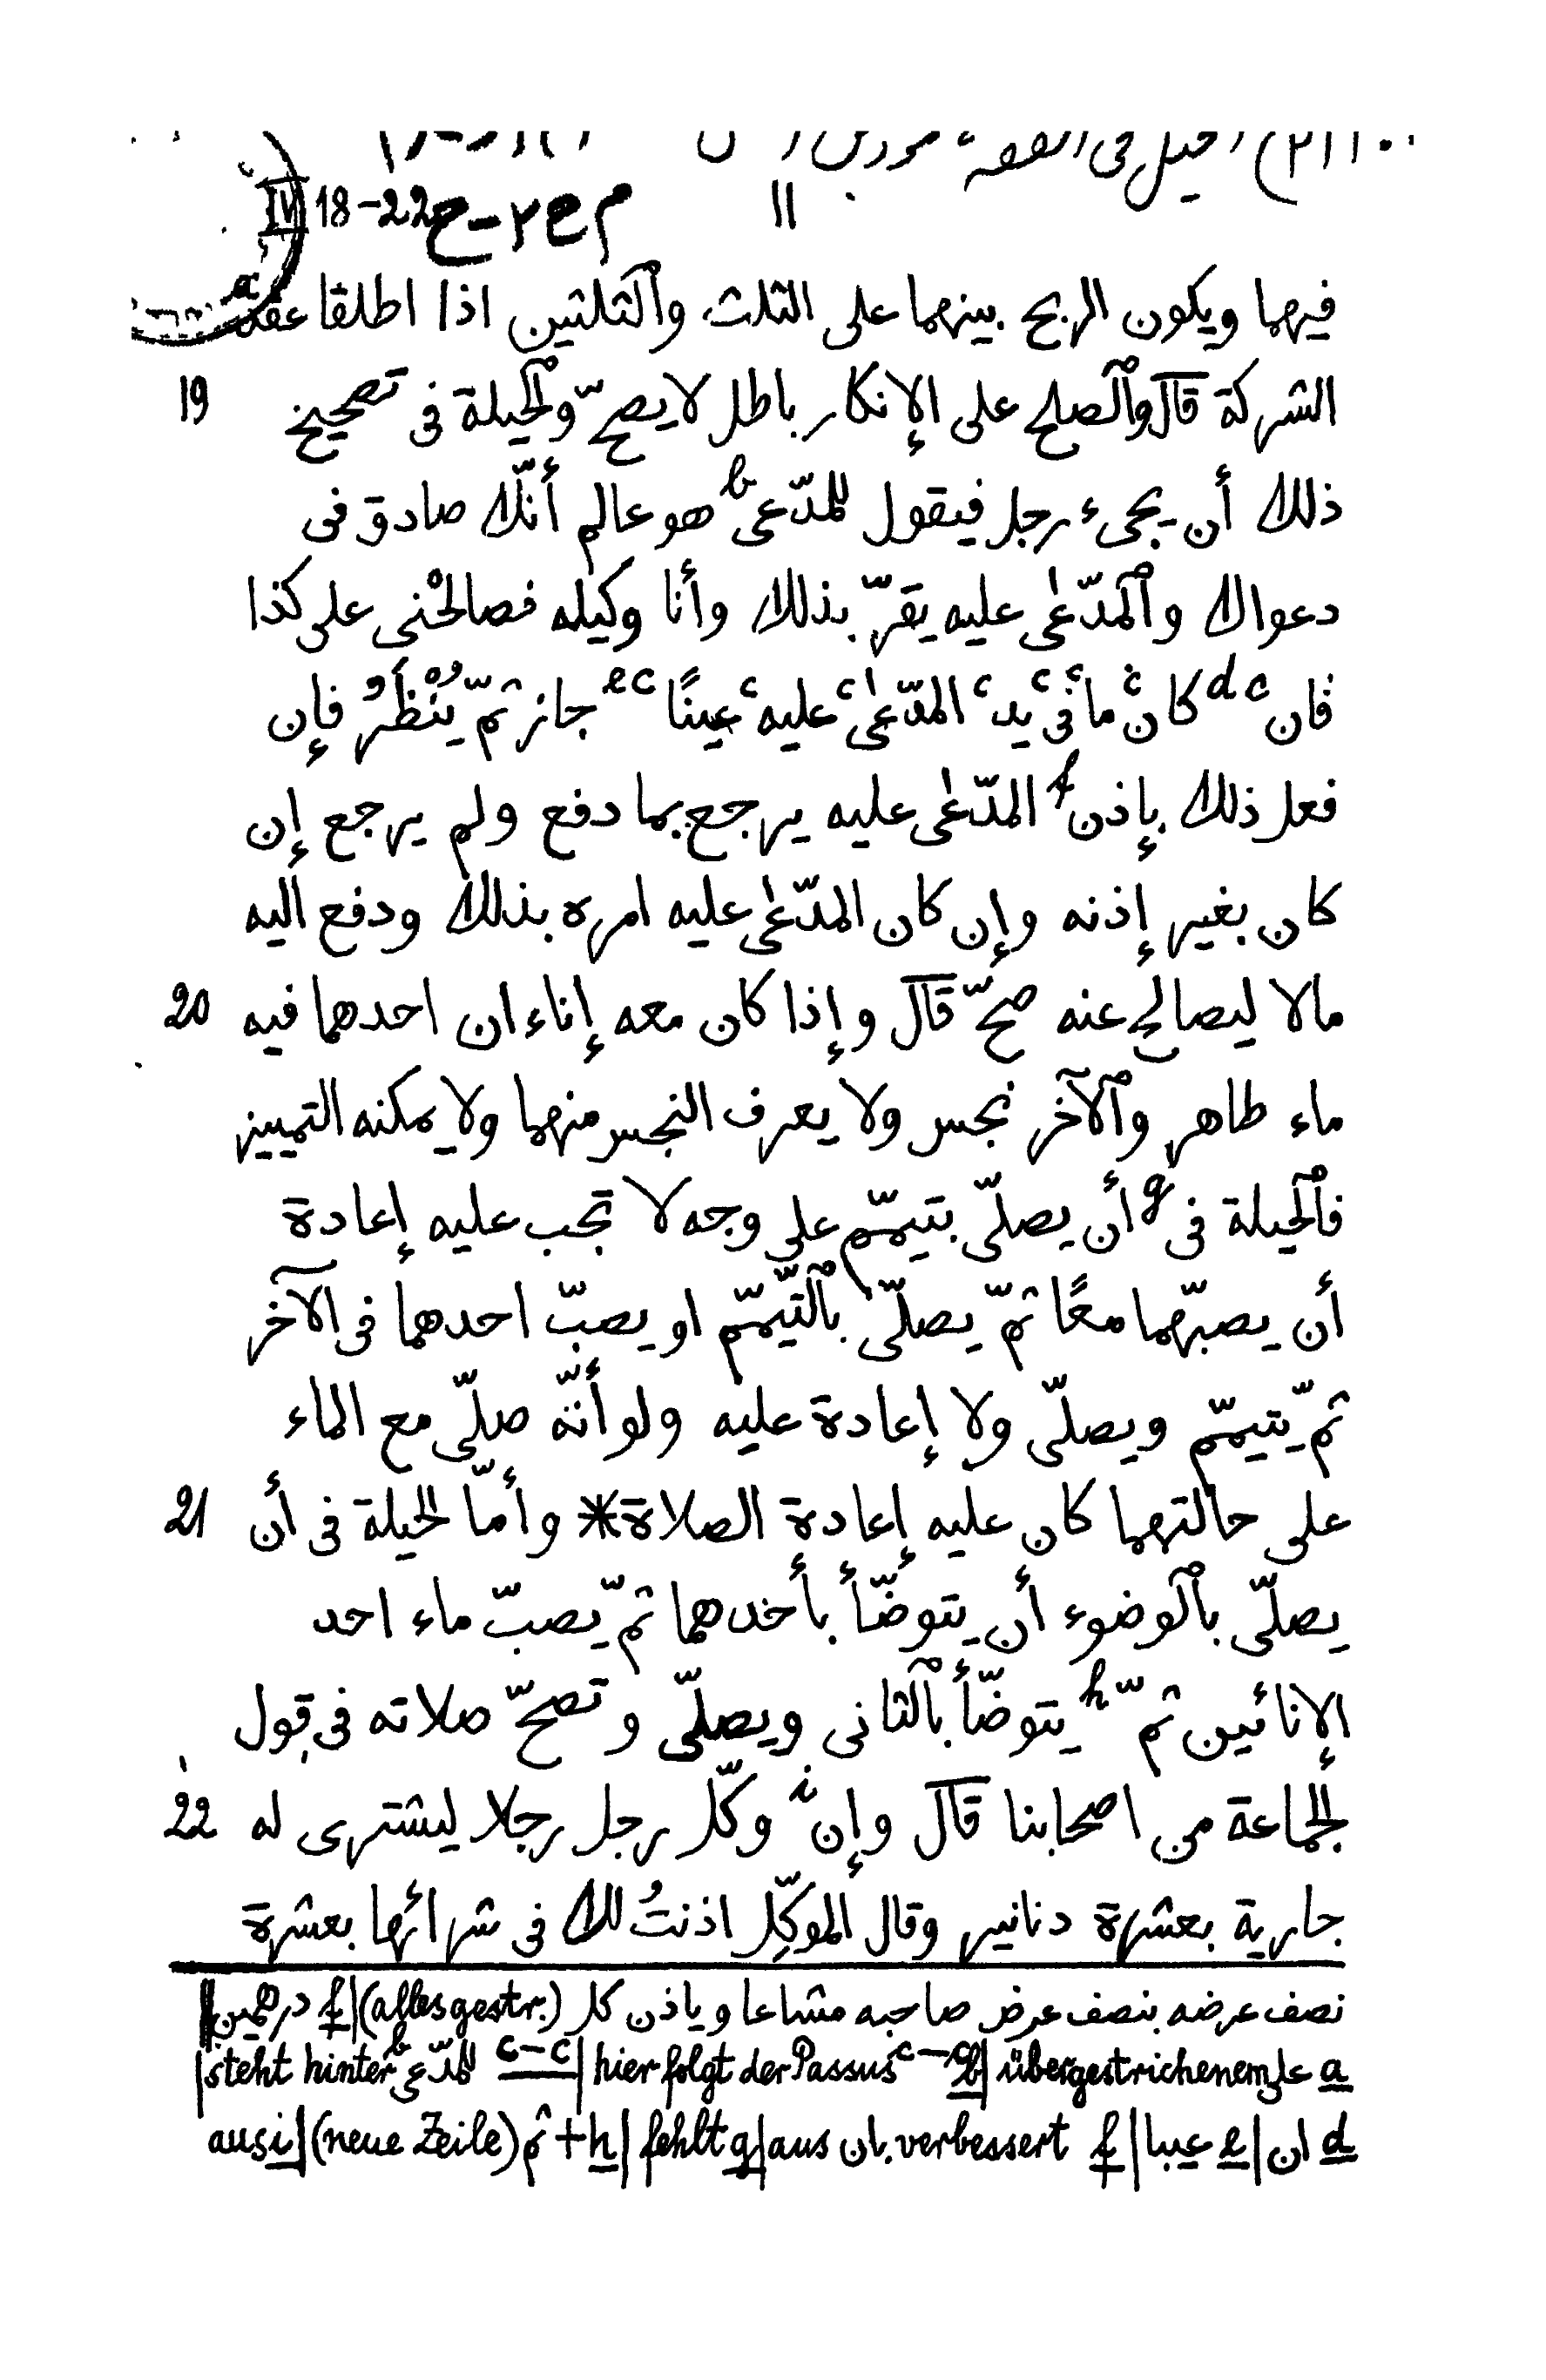 (٢) الحيل فى الفقه
IV 18-22 م ع ٢-ح 11
فيهما ويكون الربح بينهما على الثلث وٱلثلثين اذا اطلقا عقد a
الشركة قال وٱلصلح على الإنكار باطل لا يصحّ وٱلحيلة فى تصحيح 19
ذلك أن يجىء رجل فيقول للمدّعى b هو عالم أنّك صادق فى
دعواك وٱلمدّعى عليه يقرّ بذلك وأنا وكيله فصالحْنى على كذا
فان c d كان ما فى يد المدّعى عليه عينًا e c جاز ثمّ يُنْظَرُ فإن
فعل ذلك بإذن f المدّعى عليه يرجع بما دفع ولم يرجع إن
كان بغير إذنه وإن كان المدّعى عليه امره بذلك ودفع اليه
مالا ليصالح عنه صحّ قال وإذا كان معه إناءان احدهما فيه 20
ماء طاهر وٱلآخر نجس ولا يعرف النجس منهما ولا يمكنه التمييز
فٱلحيلة فى g أن يصلّى بتيمّم على وجه لا تجب عليه إعادة
أن يصبّهما معًا ثمّ يصلّى بٱلتّيمّم او يصبّ احدهما فى الآخر
ثمّ يتيمّم ويصلّى ولا إعادة عليه ولو أنّه صلّى مع الماء
على حالتهما كان عليه إعادة الصلاة* وأمّا الحيلة فى أن 21
يصلّى بٱلوضوء أن يتوضّأ بأحدهما ثمّ يصبّ ماء احد
الإنائين ثمّ h يتوضّأ بٱلثانى ويصلّى وتصحّ صلاته فى قول
الجماعة من اصحابنا قال وإن i وكّل رجل رجلا ليشترى له 22
جارية بعشرة دنانير وقال الموكّل اذنتُ لك فى شرائها بعشرة
نصف عرضه بنصف عرض صاحبه مشاعا وياذن كل (alles gestr.) | f درهمين
a على übergestrichenem | b hier folgt der Passus c–c | c–c steht hinter للمدّعى b |
d ان | e عيبا | f aus بان verbessert | g fehlt | h + ثم (neue Zeile) | i aus